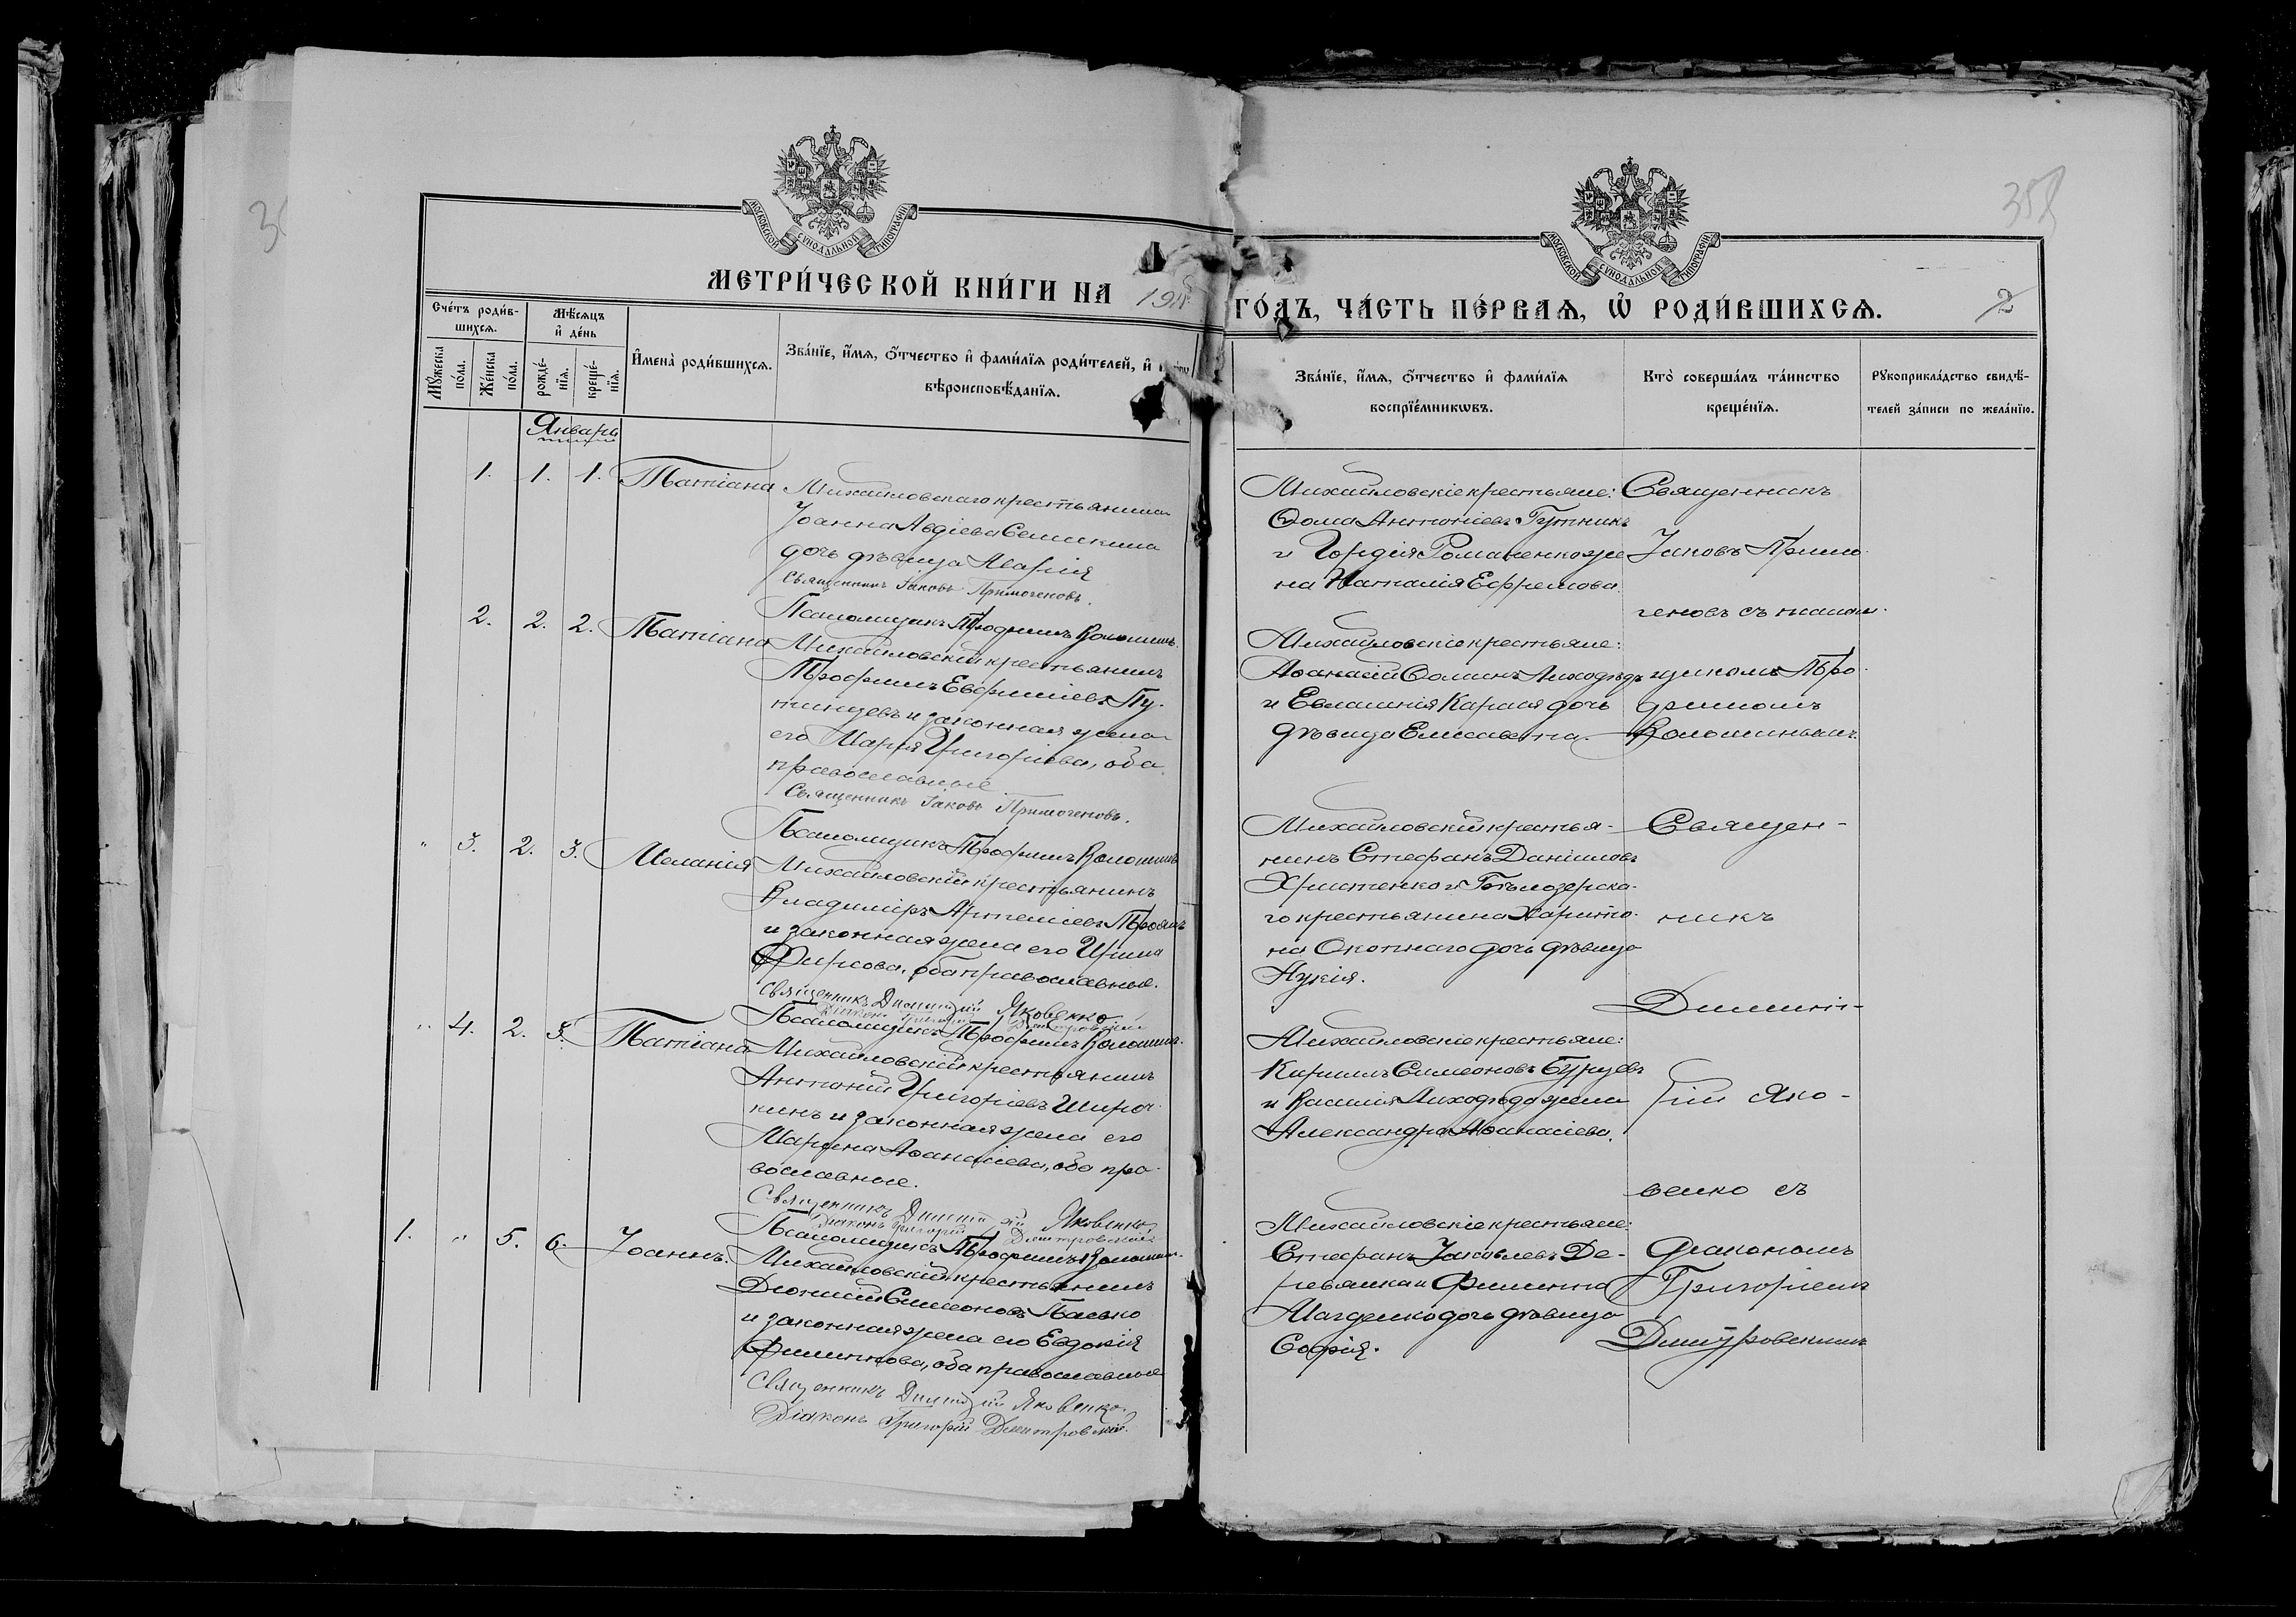 358
МОСКОВСКОЙ СѴНОДАЛЬНОЙ ТИПОГРАФІИ
МОСКОВСКОЙ СѴНОДАЛЬНОЙ ТИПОГРАФІИ
МЕТРИ́ЧЕСКОЙ КНИ́ГИ НА 191
ГО́ДЪ, ЧА́СТЬ ПЕ́РВАѦ, Ѡ҆ РОДИ́ВШИХСѦ.
2
Сче́тъ роди́в-
шихсѧ.
Мѣ́сѧцъ
и҆ де́нь
Мꙋ́жеска
по́ла.
Же́нска
по́ла.
рожде́-
нїѧ.
креще́-
нїѧ.
И҆мена̀ роди́вшихсѧ.
Зва́нїе, и҆́мѧ, ѻ҆́тчество и҆ фами́лїѧ роди́телей, и҆
вѣроисповѣ́данїѧ.
Зва́нїе, и҆́мѧ, ѻ҆́тчество и҆ фами́лїѧ
воспрїе́мникѡвъ.
Кто̀ соверша́лъ та́инство
креще́нїѧ.
Рꙋкоприкла́дство свидѣ́-
телей за́писи по жела́нїю.
Январь
1. 1. 1. Татіана
Михайловскаго крестьянина
Іоанна Авдіева Семикина
дочь дѣвица Марія
Священникъ Іаковъ Примогеновъ.
Псаломщикъ Трофимъ Волошинъ.
Михайловскіе крестьяне:
Ѳома Антоніевъ Гутникъ
и Гордія Романенко же
на Наталія Ефремова.
Священникъ
Іаковъ Примо
геновъ съ псалом
щикомъ Тро
фимомъ
Волошинымъ.
2. 2. 2. Татіана
Михайловскій крестьянинъ
Трофимъ Евфиміевъ Пу
тинцевъ и законная жена
его Марія Григоріева, оба
православные
Священникъ Іаковъ Примогеновъ.
Псаломщикъ Трофимъ Волошинъ
Михайловскіе крестьяне:
Аѳанасій Ѳоминъ Лиходѣдъ
и Евламнія Карпая дочь
дѣвица Елисавета.
" 3. 2. 3. Меланія
Михайловскій крестьянинъ
Владиміръ Артеміевъ Троянъ
и законная жена его Ирина
Фирсова, оба православные.
Священникъ Димитрій Яковенко
Діаконъ Григорій Дмитровскій
Псаломщикъ Трофимъ Волошинъ.
Михайловскій крестья-
нинъ Стефанъ Даніиловъ
Христенко и Бѣлозерска-
го крестьянина Харито-
на Окопнаго дочь дѣвица
Лукія.
Священ-
никъ
Димит-
рій Яко-
венко съ
діакономъ
Григоріемъ
Дмитровскимъ
" 4. 2. 3. Татіана
Михайловскій крестьянинъ
Антоній Григоріевъ Широч
кинъ и законная жена его
Марина Аѳанасіева, оба пра-
вославные.
Священникъ Димитрій Яковенко.
Діаконъ Григорій Дмитровскій
Псаломщикъ Трофимъ Волошинъ.
Михайловскіе крестьяне:
Кириллъ Симеоновъ Бурцевъ
и Василія Лиходѣда жена
Александра Аѳанасіева.
1. " 5. 6. Іоаннъ.
Михайловскій крестьянинъ
Діонисій Симеоновъ Палько
и законная жена его Евдокія
Филиппова, оба православные
Священникъ Димитрій Яковенко.
Діаконъ Григорій Дмитровскій.
Михайловскіе крестьяне:
Стефанъ Іаковлевъ Де-
ревянка и Филиппа
Магденко дочь дѣвица
Софія.